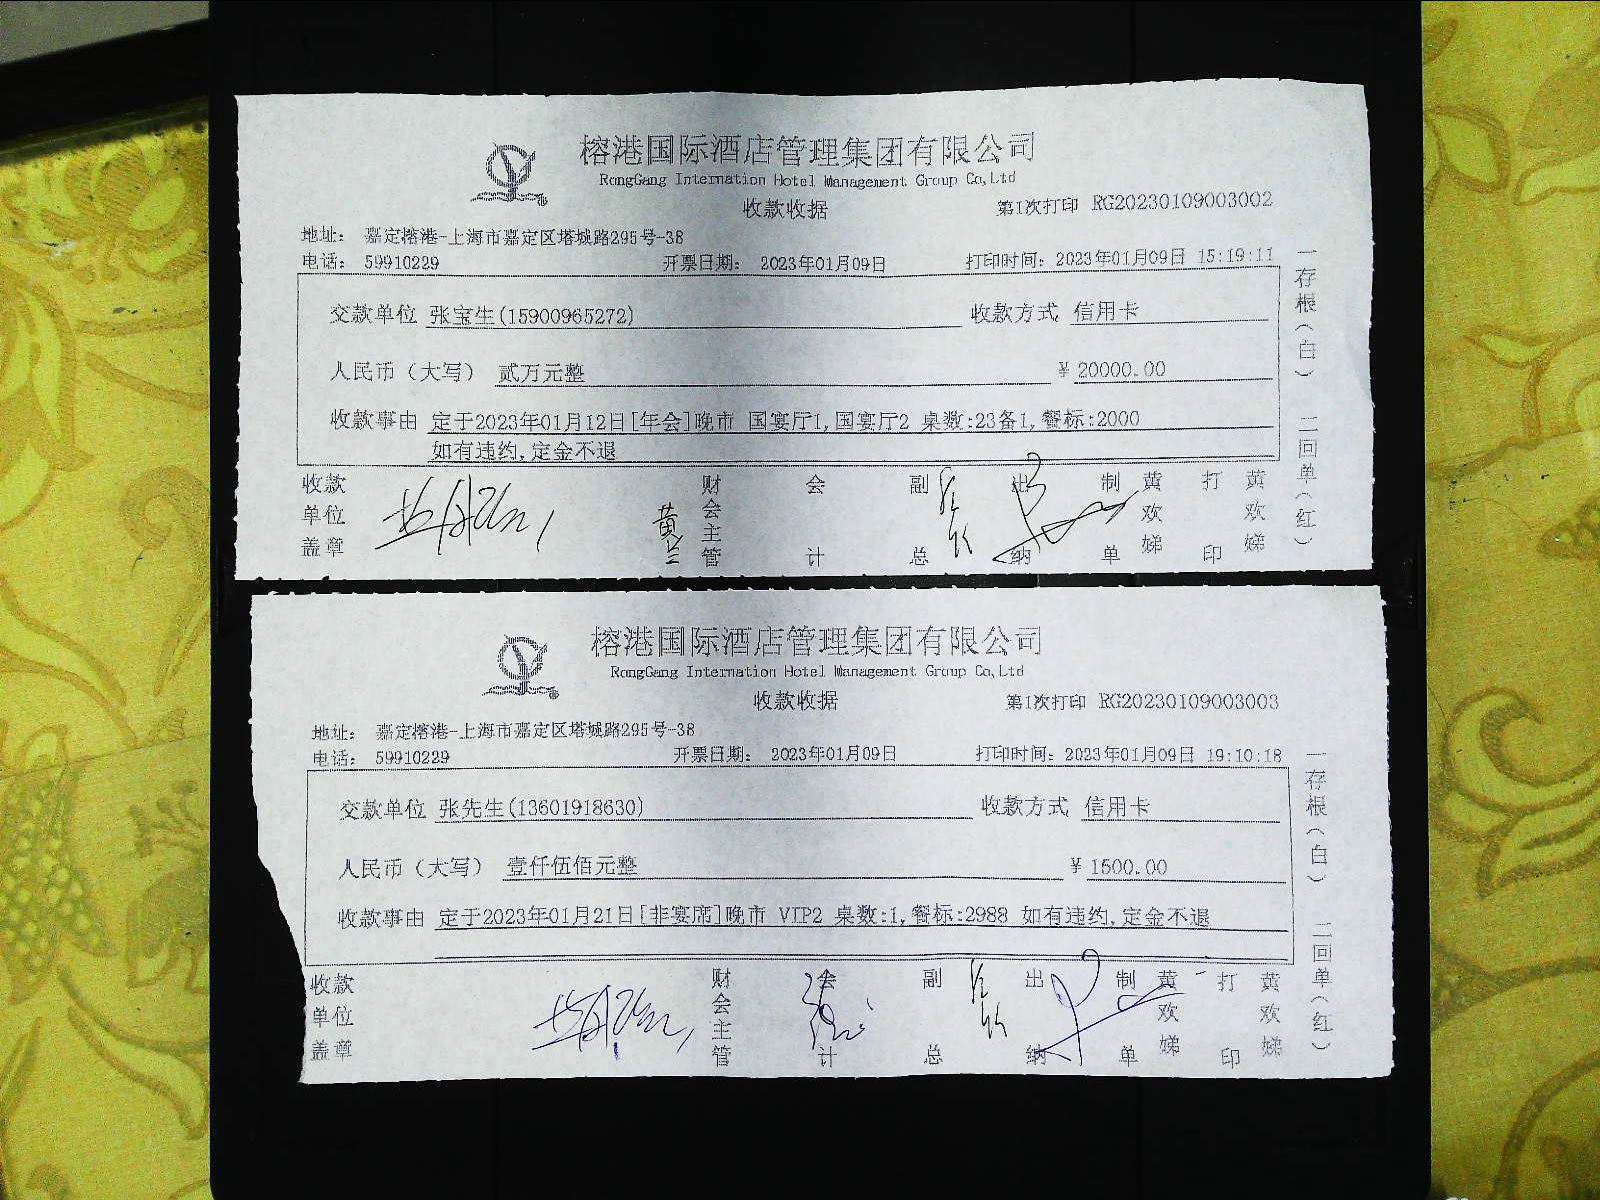 榕港国际酒店管理集团有限公司
RongGang Internation Hotel Management Group Co,Ltd
收款收据
第1次打印 RG20230109003002
地址： 嘉定榕港-上海市嘉定区塔城路295号-38
电话： 59910229 开票日期： 2023年01月09日 打印时间：2023年01月09日 15:19:11
交款单位 张宝生(15900965272) 收款方式 信用卡
人民币（大写） 贰万元整 ￥20000.00
收款事由 定于2023年01月12日[年会]晚市 国宴厅1,国宴厅2 桌数:23备1,餐标:2000
如有违约,定金不退
收款单位盖章 黄兰 财会主管 会计 副总 出纳 制单 黄欢娣 打印 黄欢娣
一存根（白） 二回单（红）
榕港国际酒店管理集团有限公司
RongGang Internation Hotel Management Group Co,Ltd
收款收据
第1次打印 RG20230109003003
地址： 嘉定榕港-上海市嘉定区塔城路295号-38
电话： 59910229 开票日期： 2023年01月09日 打印时间：2023年01月09日 19:10:18
交款单位 张先生(13601918630) 收款方式 信用卡
人民币（大写） 壹仟伍佰元整 ￥1500.00
收款事由 定于2023年01月21日[非宴席]晚市 VIP2 桌数:1,餐标:2988 如有违约,定金不退
收款单位盖章 财会主管 会计 副总 出纳 制单 黄欢娣 打印 黄欢娣
一存根（白） 二回单（红）